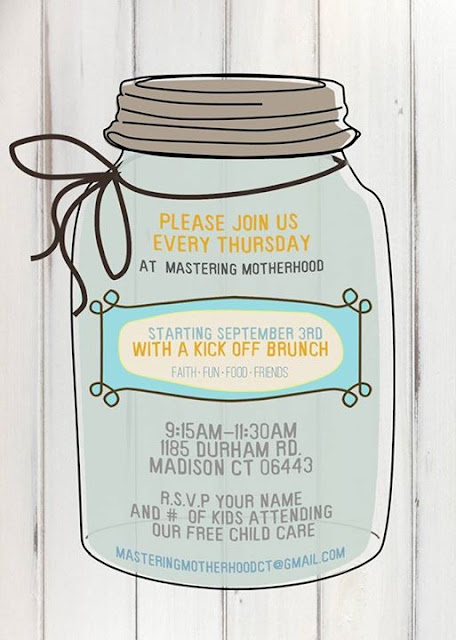 PLEASE JOIN US
EVERY THURSDAY
AT MASTERING MOTHERHOOD
STARTING SEPTEMBER 3RD
WITH A KICK OFF BRUNCH
FAITH · FUN · FOOD · FRIENDS
9:15AM-11:30AM
1185 DURHAM RD.
MADISON CT 06443
R.S.V.P YOUR NAME
AND # OF KIDS ATTENDING
OUR FREE CHILD CARE
MASTERINGMOTHERHOODCT@GMAIL.COM